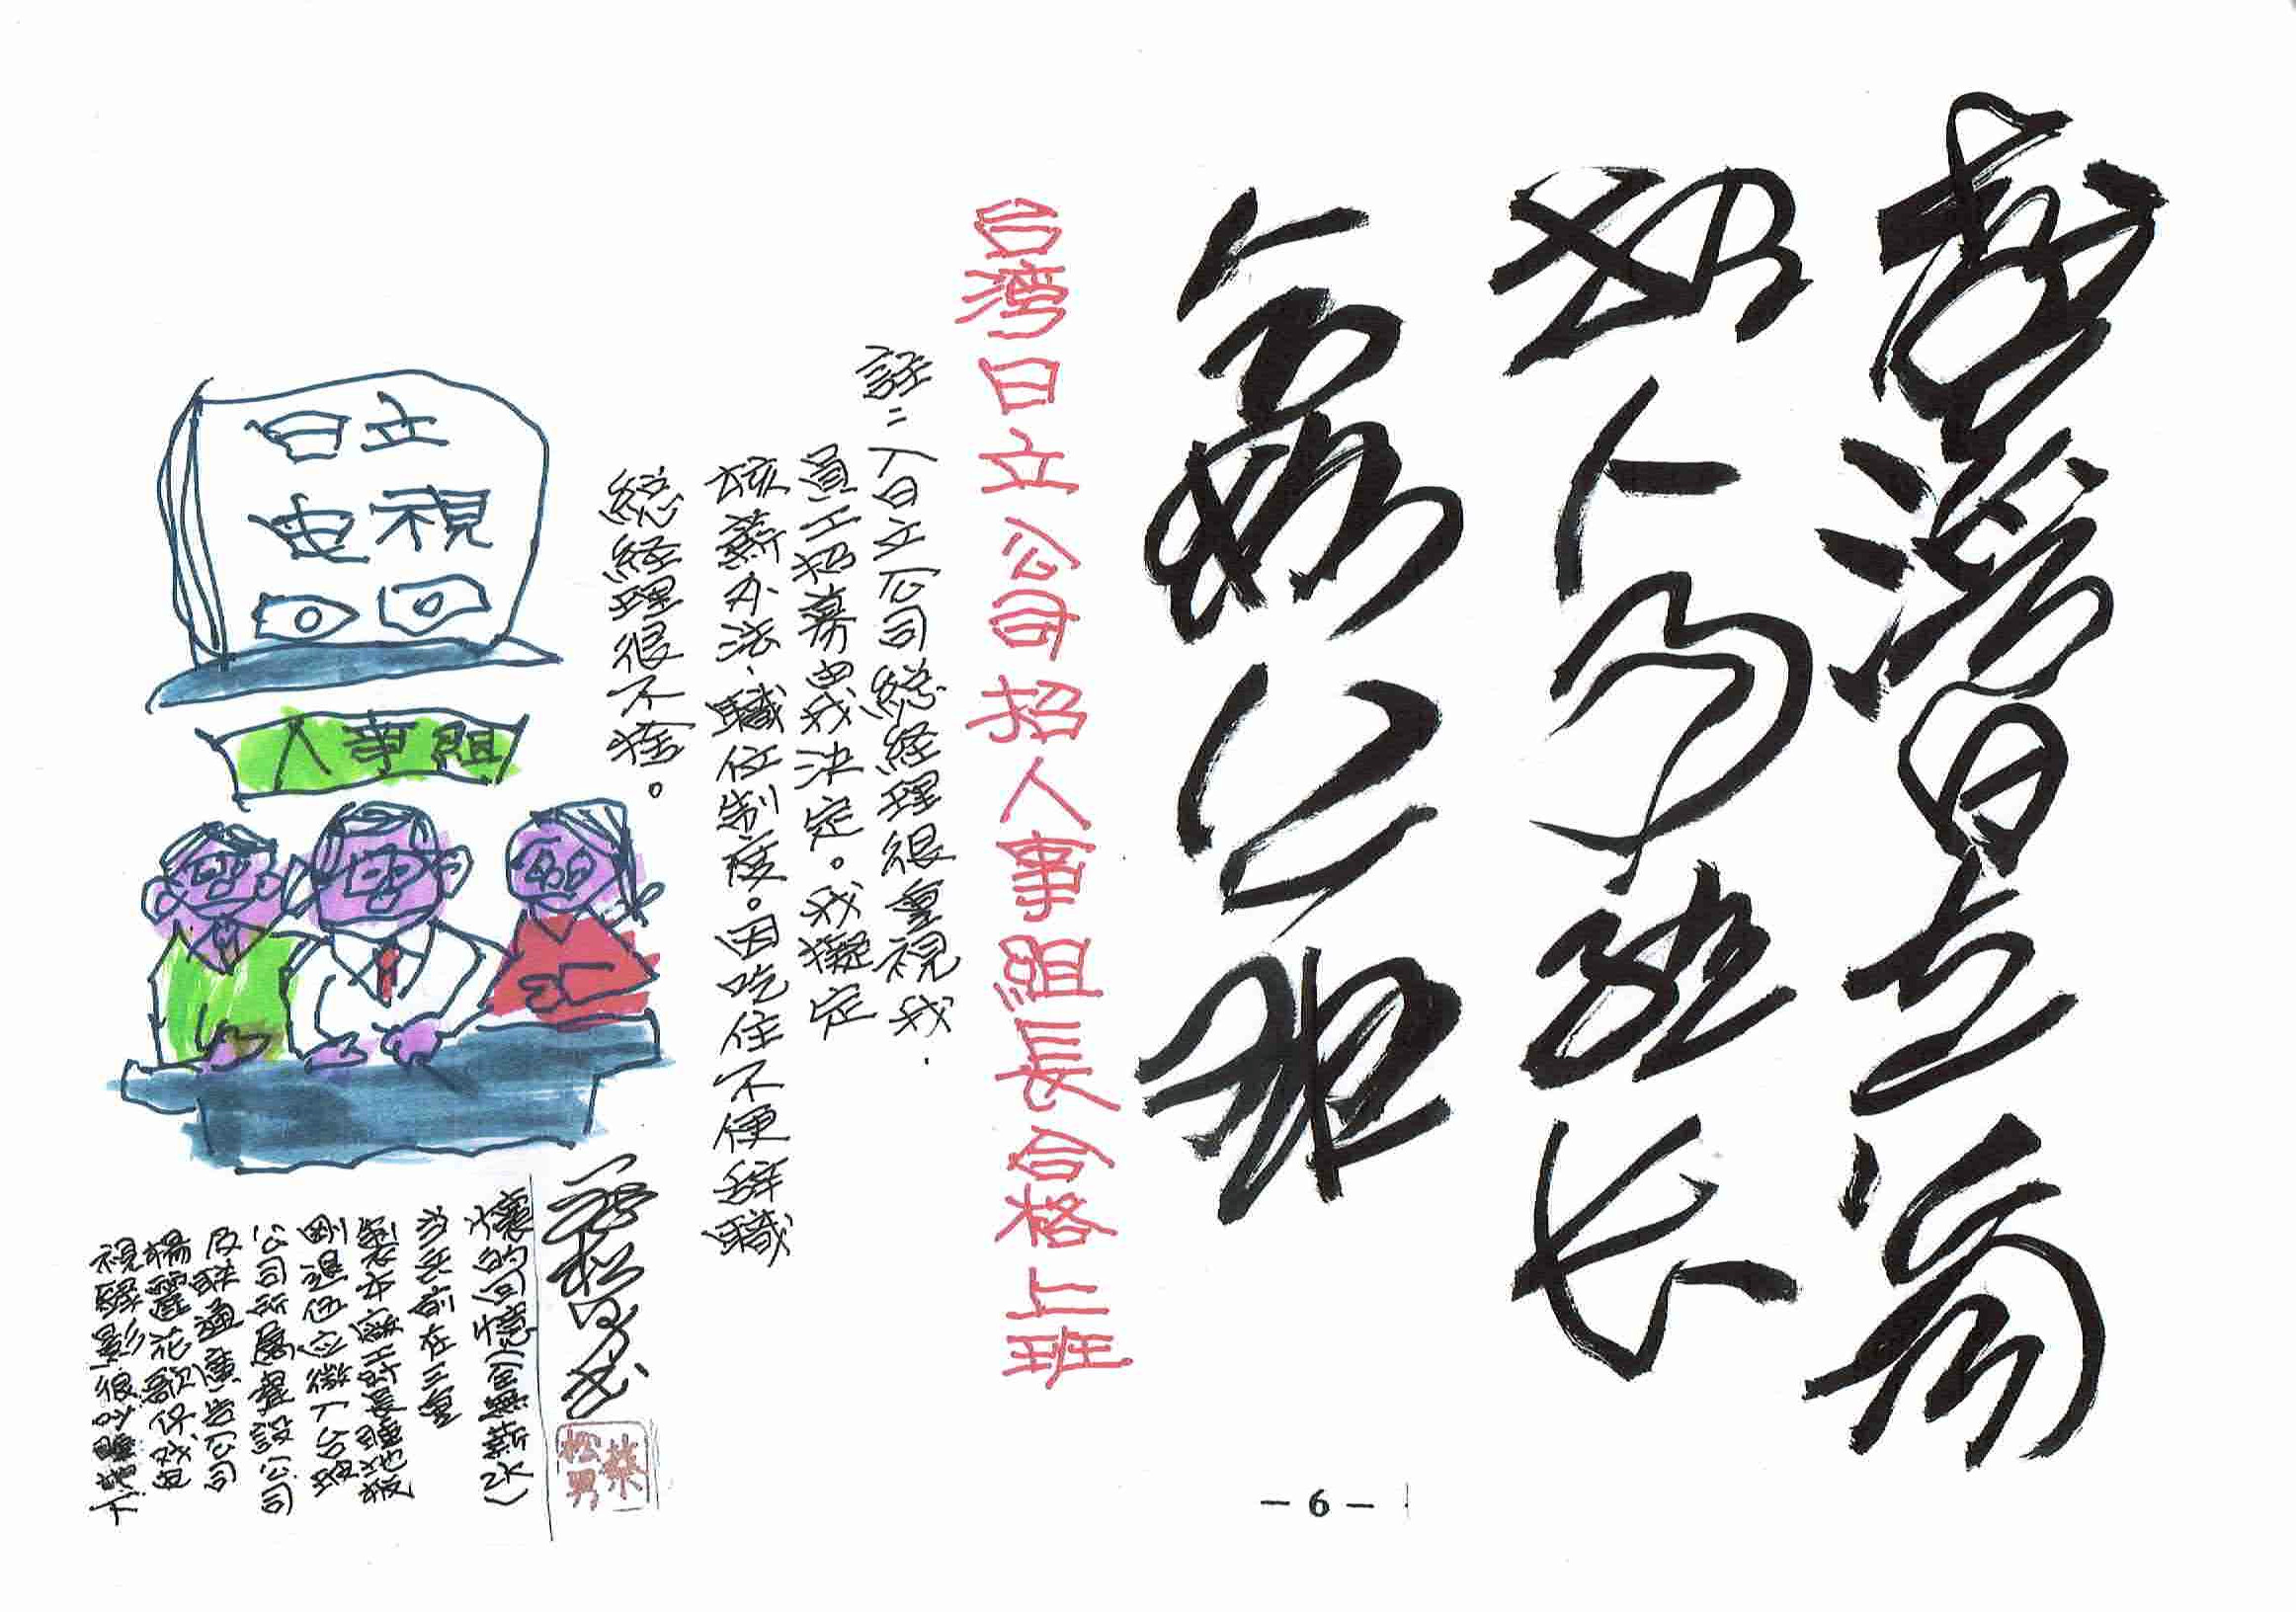 台灣日立公司
招人事組长
合格上班
台湾日立公司招人事組長合格上班
註=人日立公司總経理很重視我.
員工招募由我決定。我擬定
核薪办法、職位制度。因吃住不便辞職
総経理很不捨。
日立
电視
人事組
松男
懷的回憶(全無薪水)
当兵前在三重
製衣市做工時長睡地板
剛退伍应徵
公司所屬建設公司
及联通廣告公司
楊麗花歌仔戏电
視錄影很吵睡地下
- 6 -